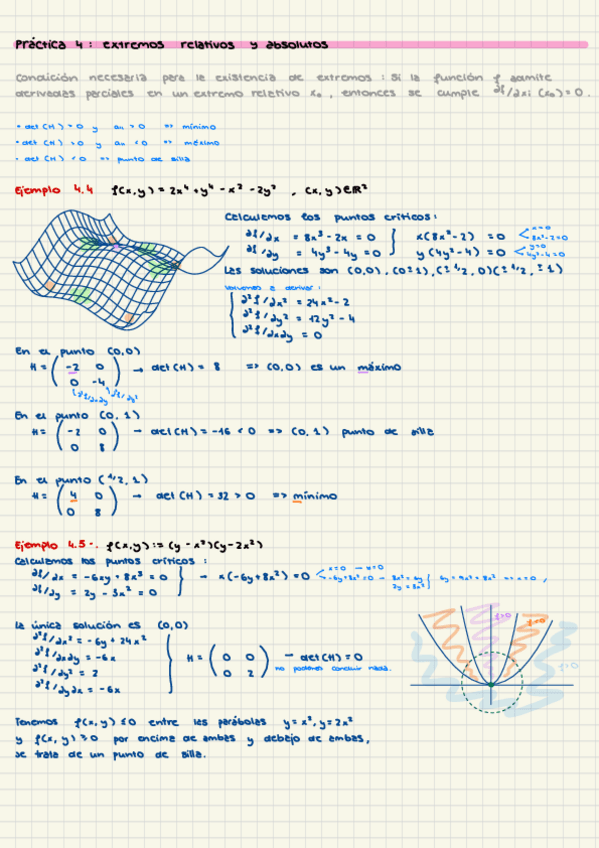 Práctica 4: extremos relativos y absolutos
Condición necesaria para la existencia de extremos: Si la función f admite
derivadas parciales en un extremo relativo x₀, entonces se cumple ∂f/∂xi (x₀) = 0.
• det (H) > 0 y a₁₁ > 0 => mínimo
• det (H) > 0 y a₁₁ < 0 => máximo
• det (H) < 0 => punto de silla
Ejemplo 4.4 f(x,y) = 2x⁴ + y⁴ - x² - 2y², (x,y)∈ℝ²
Calculemos los puntos críticos:
∂f/∂x = 8x³ - 2x = 0 } x(8x² - 2) = 0 < x=0 8x²-2=0
∂f/∂y = 4y³ - 4y = 0 } y(4y² - 4) = 0 < y=0 4y²-4=0
Las soluciones son (0,0), (0±1), (±1/2, 0)(±1/2, ±1)
volvemos a derivar:
∂²f/∂x² = 24x² - 2
∂²f/∂y² = 12y² - 4
∂²f/∂x∂y = 0
En el punto (0,0)
H = ( -2 0 → det (H) = 8 => (0,0) es un máximo
0 -4 )
∂²f/∂x∂y ∂²f/∂y²
En el punto (0, 1)
H = ( -2 0 → det (H) = -16 < 0 => (0, 1) punto de silla
0 8 )
En el punto (1/2, 1)
H = ( 4 0 → det (H) = 32 > 0 => mínimo
0 8 )
Ejemplo 4.5-. f(x,y) := (y - x²)(y - 2x²)
Calculemos los puntos críticos:
∂f/∂x = -6xy + 8x³ = 0 } → x(-6y + 8x²) = 0
∂f/∂y = 2y - 3x² = 0
La única solución es (0,0)
∂²f/∂x² = -6y + 24x²
∂²f/∂x∂y = -6x
∂²f/∂y² = 2
∂²f/∂y∂x = -6x
H = ( 0 0 → det (H) = 0
0 2 ) no podemos concluir nada.
f>0
f<0
f>0
Tenemos f(x,y) ≤ 0 entre las parábolas y = x², y = 2x²
y f(x,y) ≥ 0 por encima de ambas y debajo de ambas,
se trata de un punto de silla.